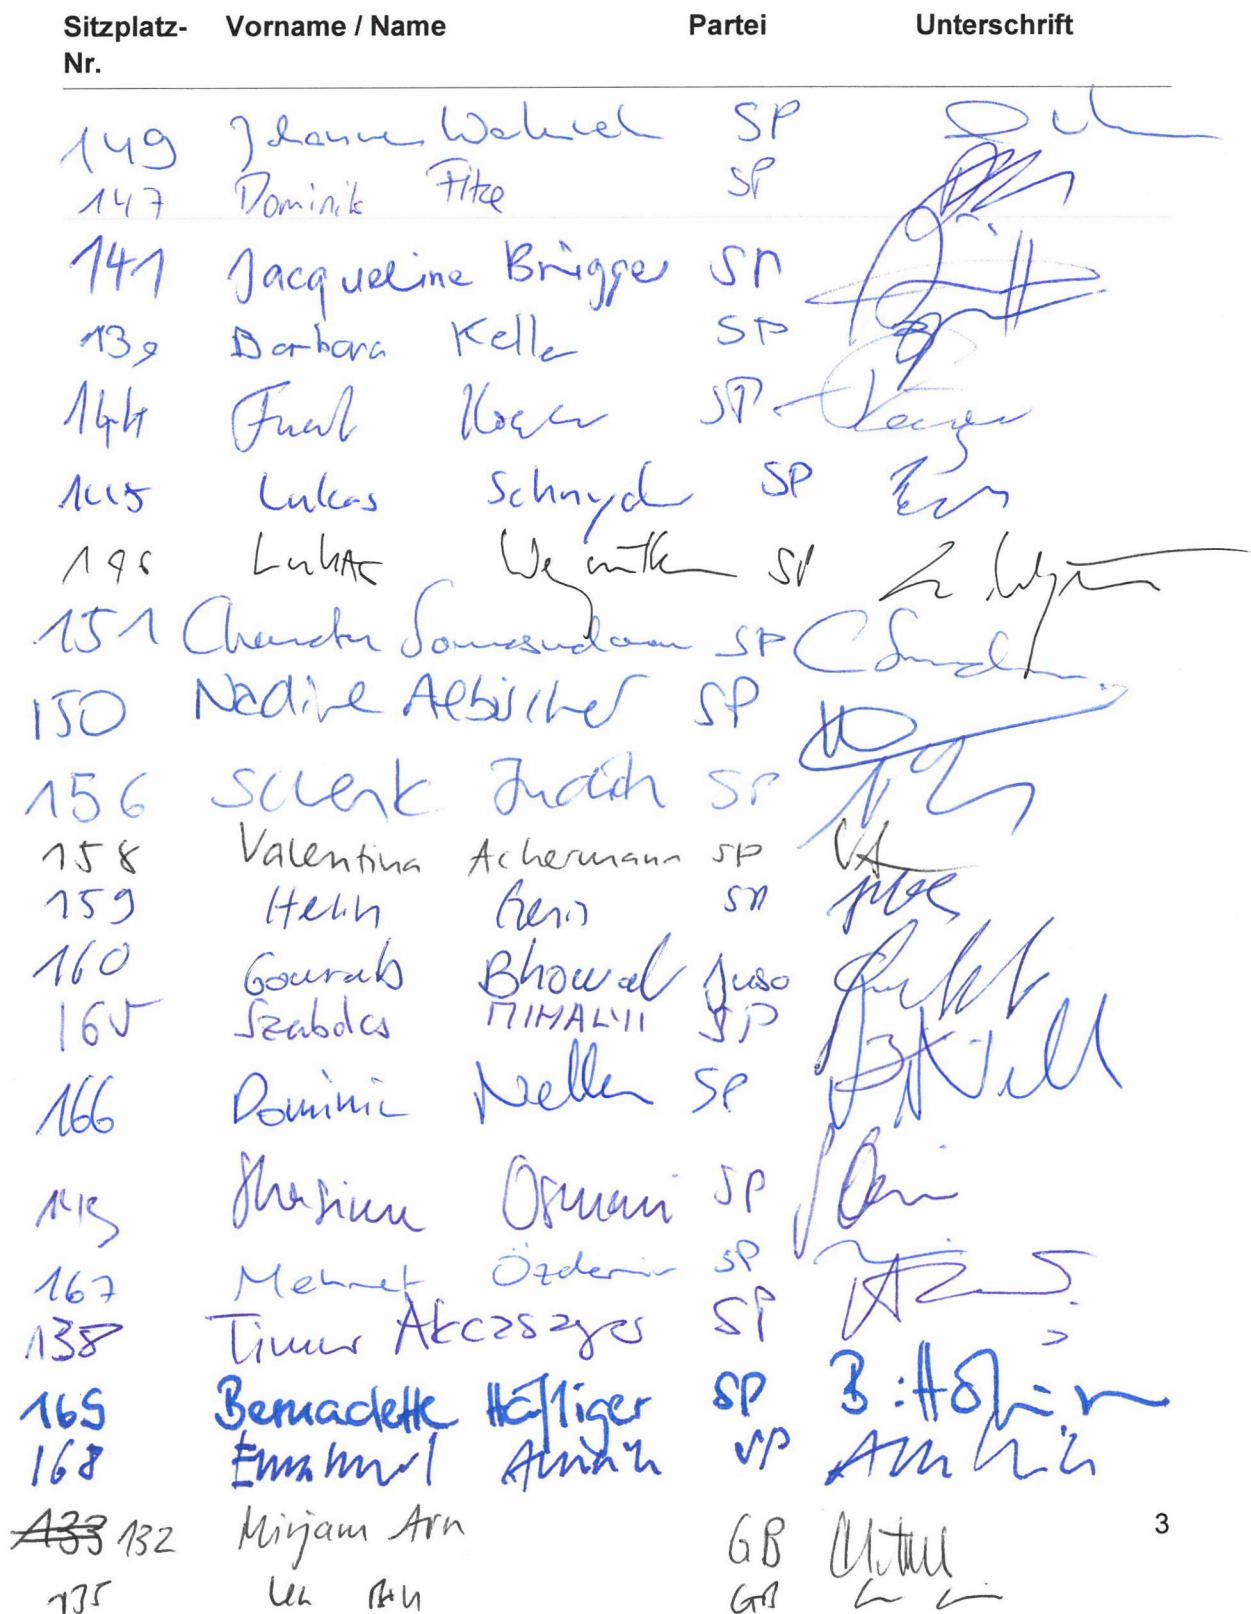 Sitzplatz-Nr. Vorname / Name Partei Unterschrift
149 Johannes Wartenweiler SP
147 Dominik Fitze SP
141 Jacqueline Brügger SP
139 Barbara Keller SP
144 Fuat Köçer SP
145 Lukas Schnyder SP
146 Lukas Wegmüller SP
151 Chandru Somasundaram SP
150 Nadine Aebischer SP
156 Schenk Judith SP
158 Valentina Achermann SP VA
159 Helin Genis SP
160 Gourab Bhowal Juso
165 Szabolcs MIHALYI SP
166 Dominic Nellen SP
Shasime Osmani SP
167 Mehmet Özdemir SP
138 Timur Akçasayar SP
169 Bernadette Häfliger SP
168 Emanuel Amrein SP
133 132 Mirjam Arn GB
135 Lea Bill GB
3